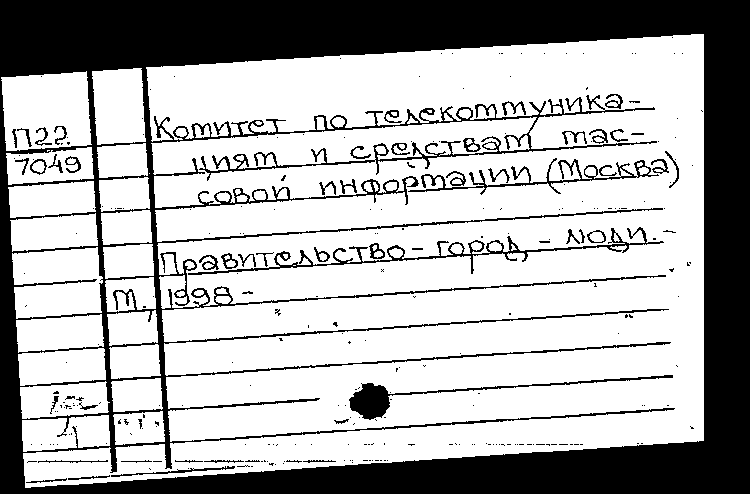 П22
7049
Комитет по телекоммуника-
циям и средствам мас-
совой информации (Москва)
Правительство - город - люди. -
М., 1998 -